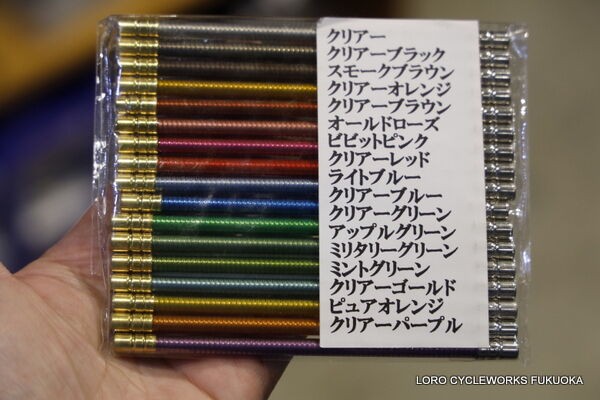 クリアー
クリアーブラック
スモークブラウン
クリアーオレンジ
クリアーブラウン
オールドローズ
ビビットピンク
クリアーレッド
ライトブルー
クリアーブルー
クリアーグリーン
アップルグリーン
ミリタリーグリーン
ミントグリーン
クリアーゴールド
ピュアオレンジ
クリアーパープル
LORO CYCLEWORKS FUKUOKA